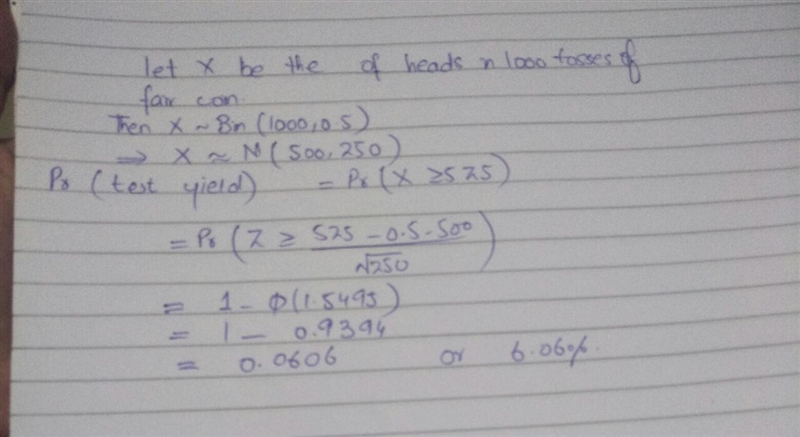 let X be the of heads n 1000 tosses of
fair con
Then X ~ Bn (1000, 0.5)
⇒ X ≈ N (500, 250)
Pr (test yield) = Pr (X ≥ 525)
= Pr ( Z ≥ 525 - 0.5 - 500 / √250 )
= 1 - Φ(1.5495)
= 1 - 0.9394
= 0.0606 or 6.06%.